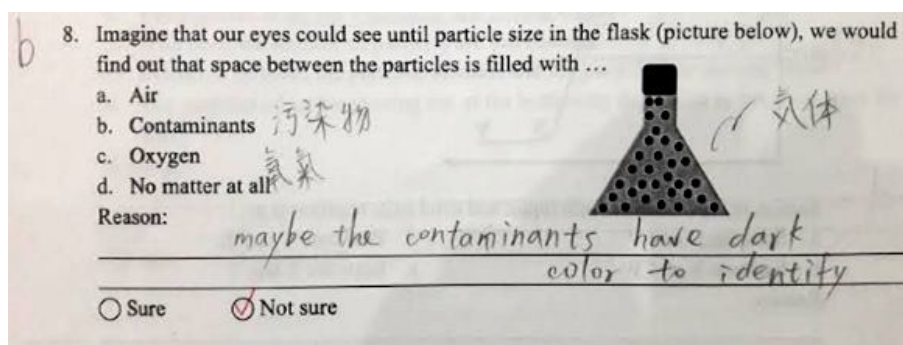 b
8. Imagine that our eyes could see until particle size in the flask (picture below), we would
find out that space between the particles is filled with ...
a. Air
気体
b. Contaminants 污染物
c. Oxygen
d. No matter at all
Reason:
maybe the contaminants have dark
color to identify
Sure
Not sure